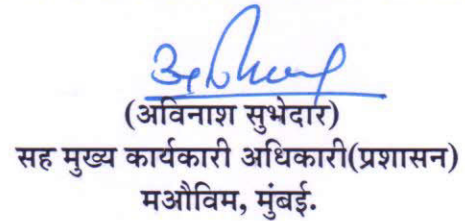 (अविनाश सुभेदार)
सह मुख्य कार्यकारी अधिकारी(प्रशासन)
मऔविम, मुंबई.